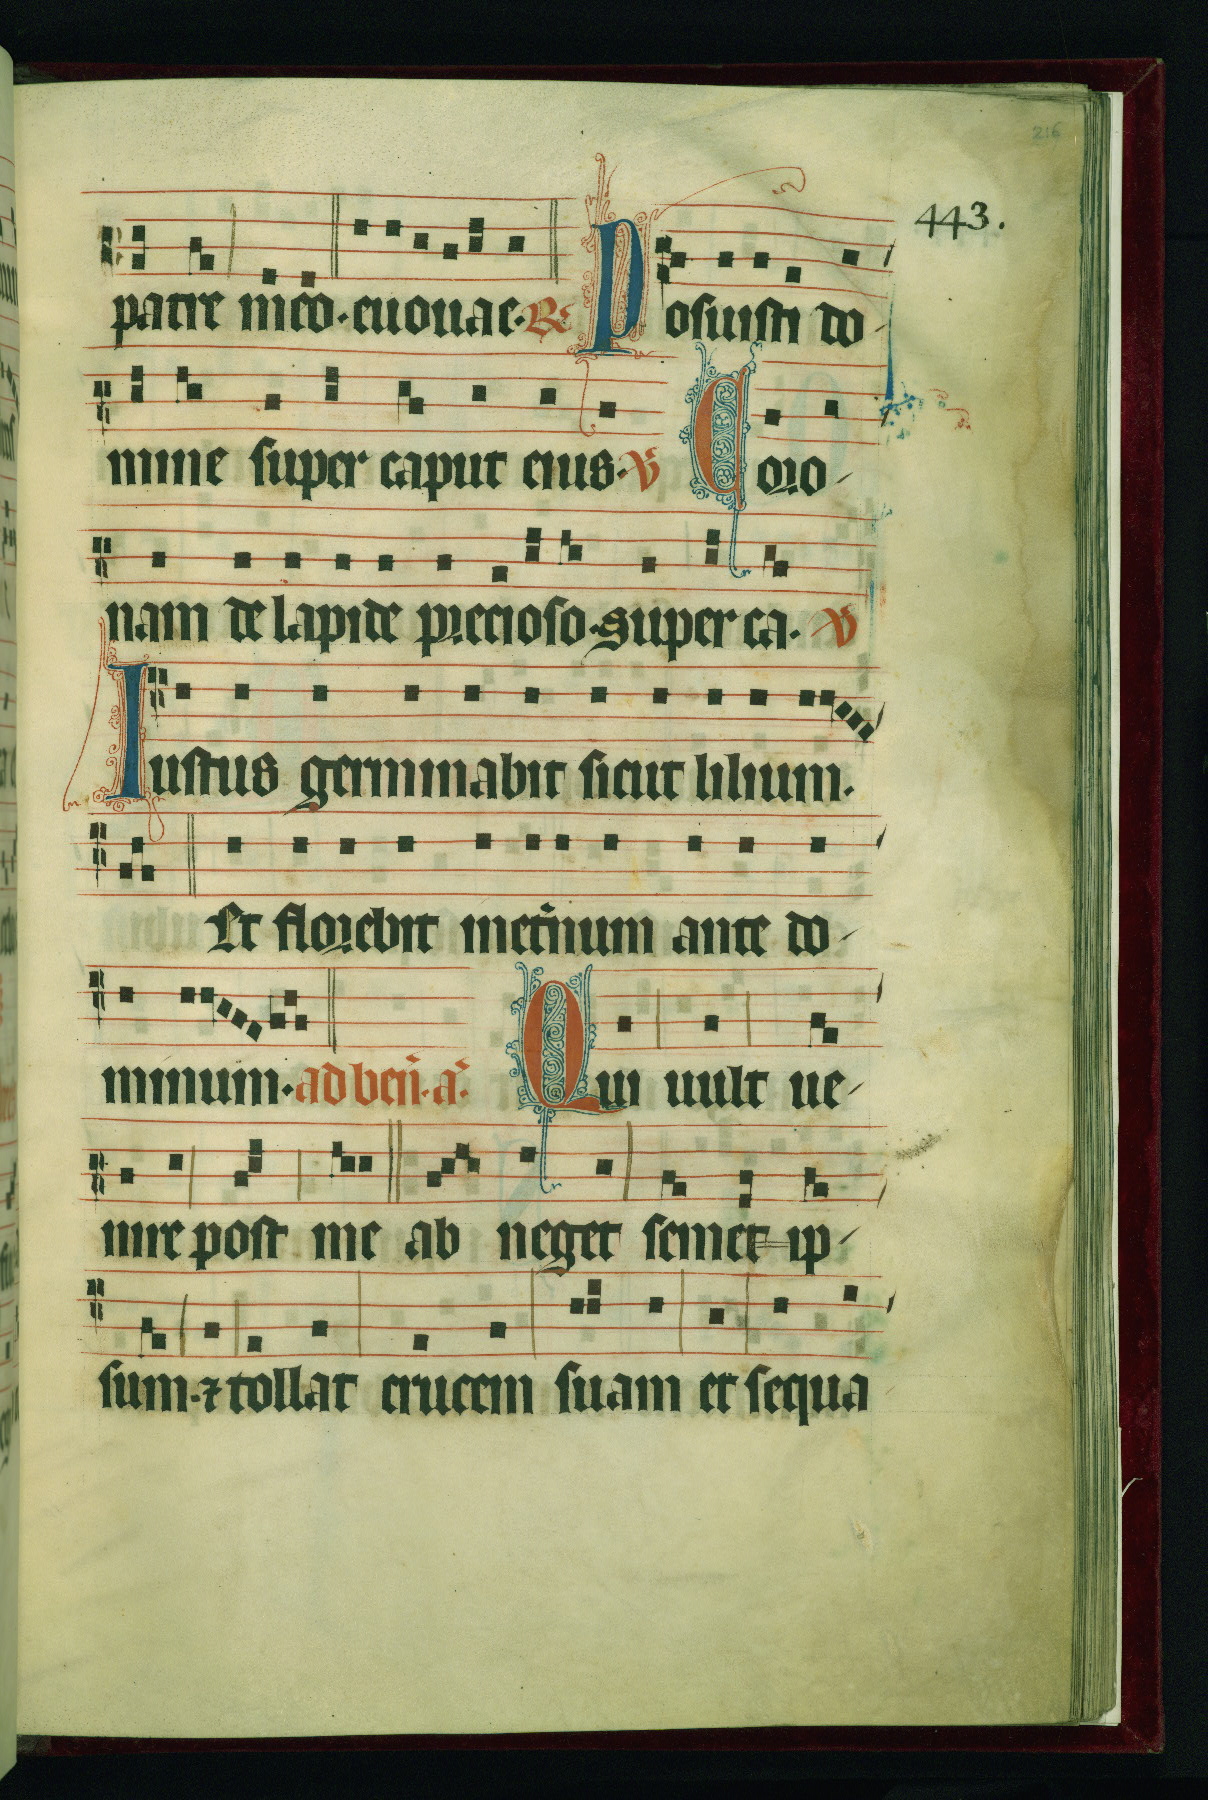 216
443.
patre meo. euouae. R Posuisti do
mine super caput eius. V Coro
nam de lapide precioso. Super ca. V
Iustus germinabit sicut lilium.
Et florebit inet̄num ante do
minum. ad ben̄. a.̄ Qui uult ue
nire post me ab neget semet ip
sum. ⁊ tollat crucem suam et sequa